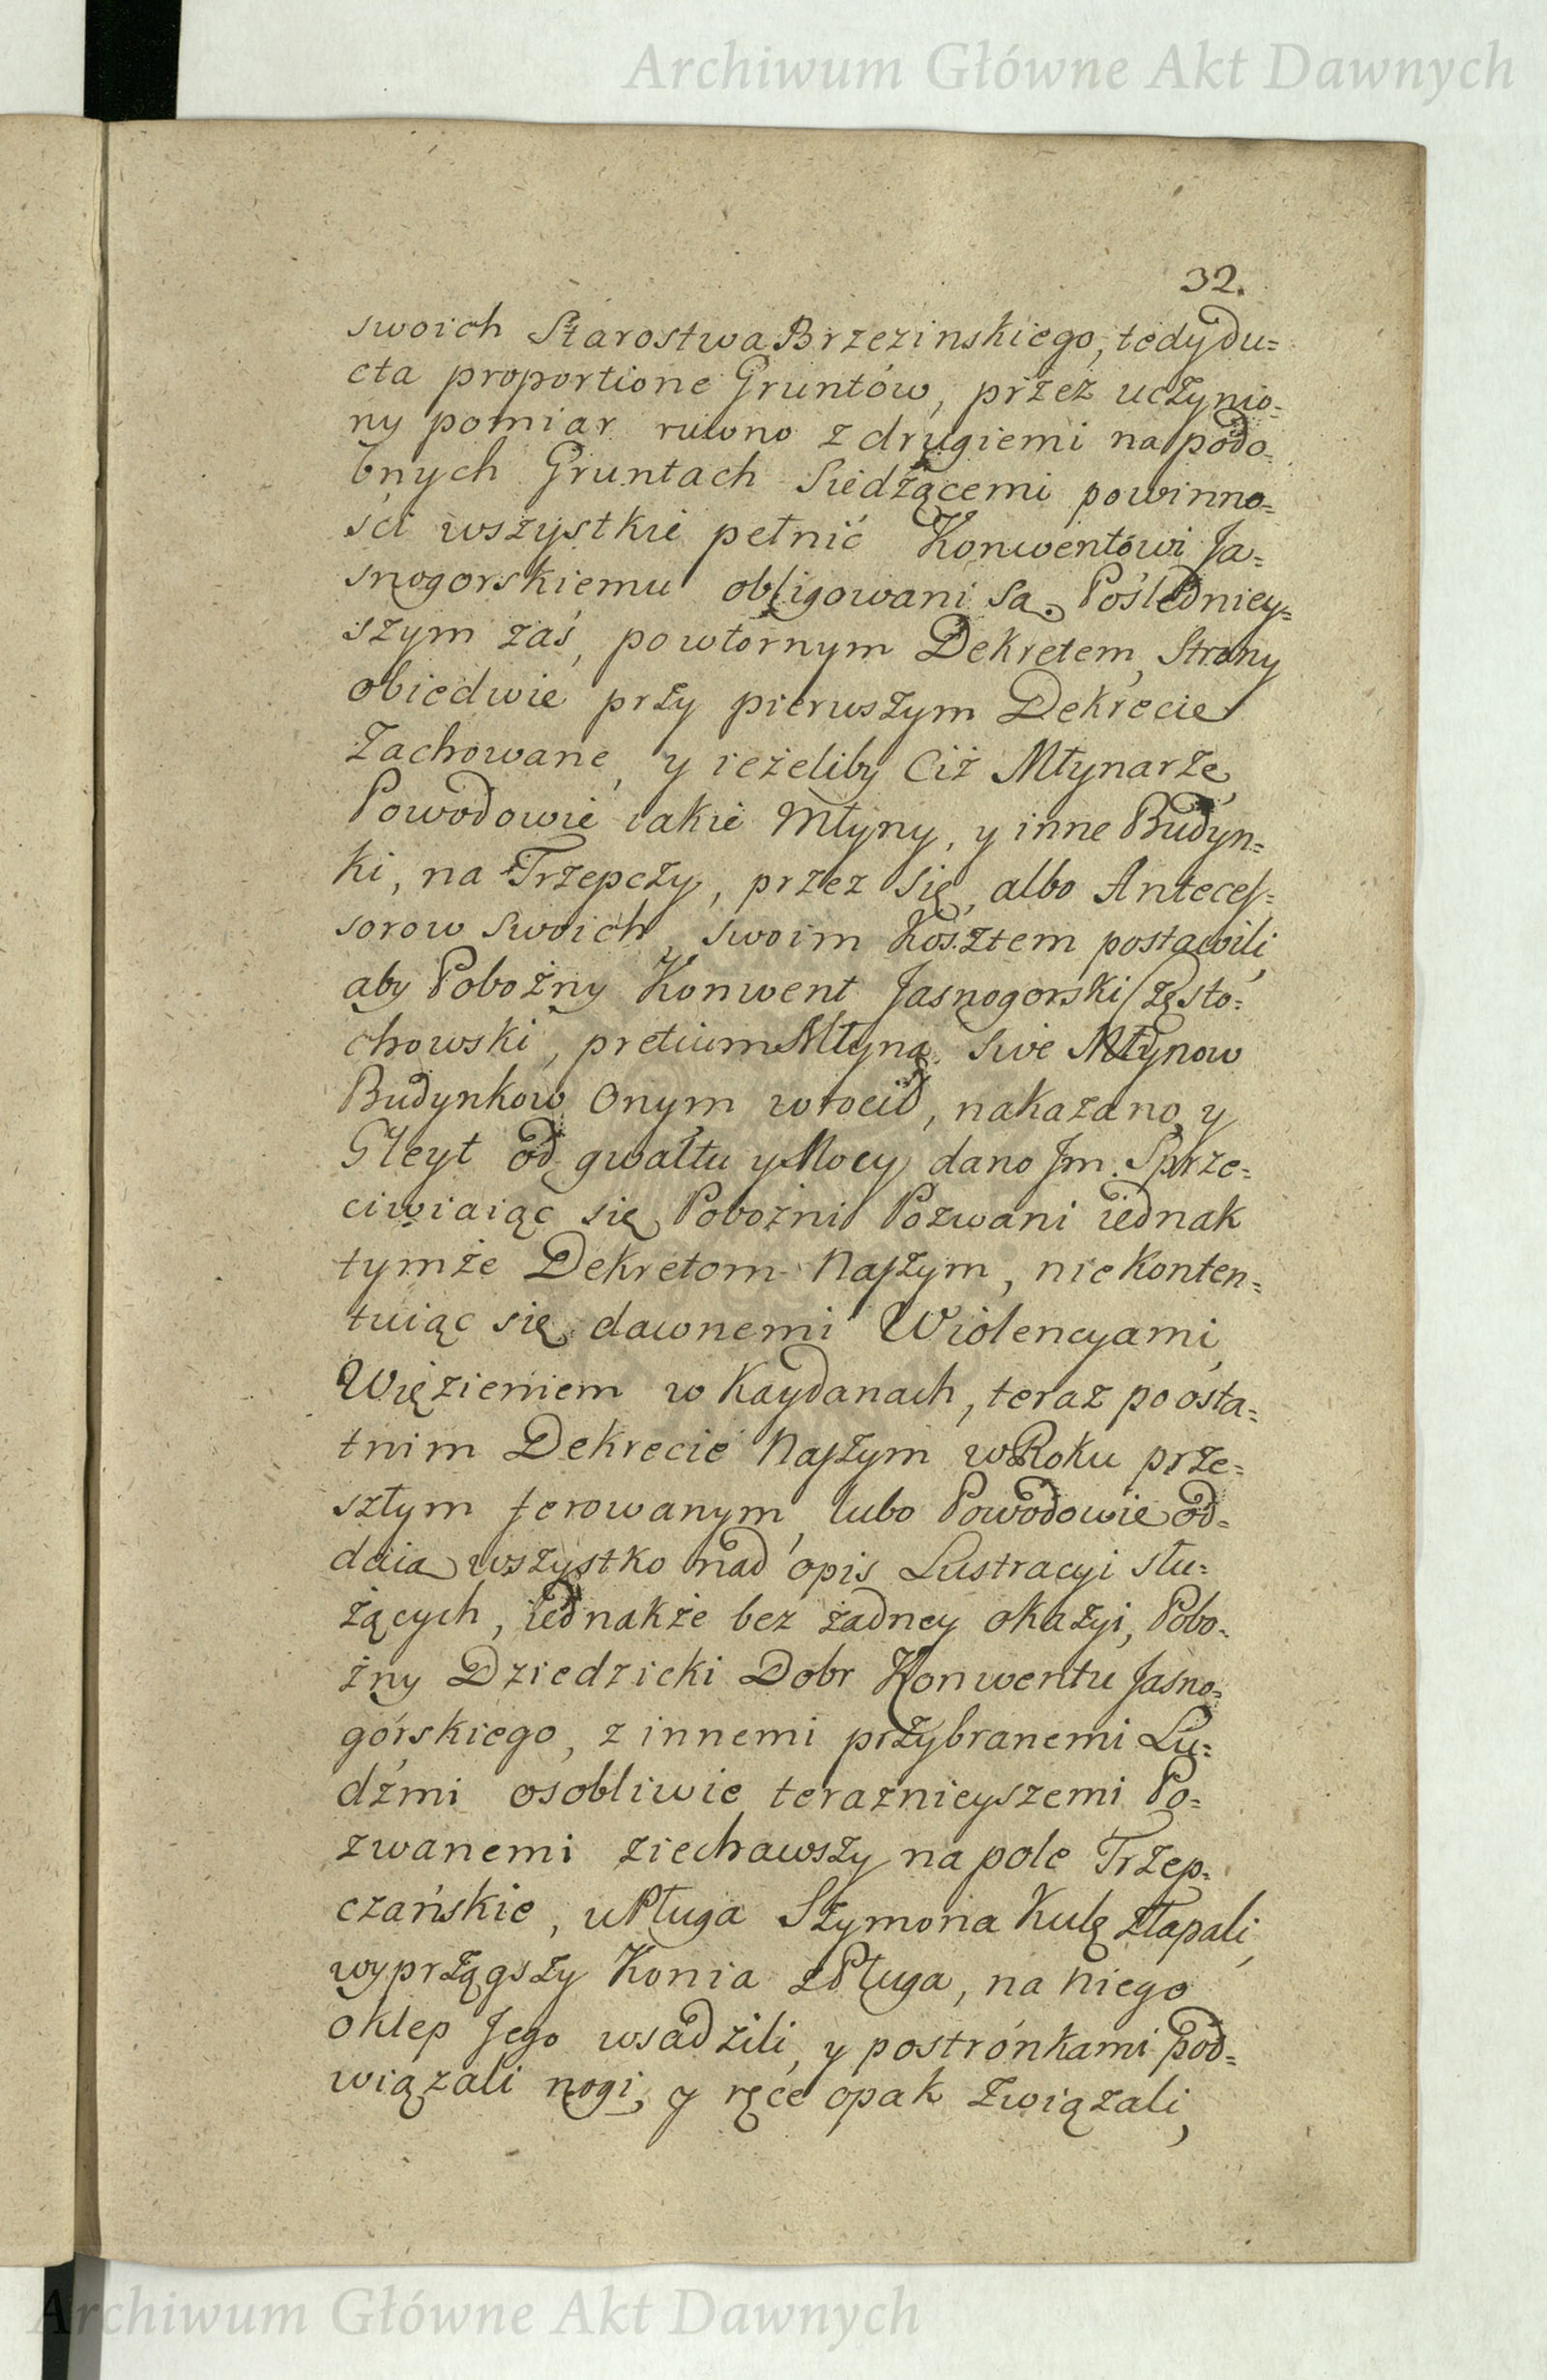 Archiwum Główne Akt Dawnych
32.
swoich Starostwa Brzezinskiego, tedy du=
cta proportione Gruntów, przez uczynio=
ny pomiar ruwno z drugiemi na podo=
bnych Gruntach Siedzącemi powinno=
ści wszystkie pełnić Konwentówi Ja=
snogorskiemu obligowani Są. Pośledniey=
szym zaś, powtórnym Dekretem, Strony
obiedwie przy pierwszym Dekrecie
Zachowane, y ieżeliby Ciż Młynarze,
Powodowie iakie Młyny, y inne Budyn=
ki, na Trzepczy, przez Się, albo Anteces=
sorow Swoich, swoim Kosztem postawili,
aby Pobożny Konwent Jasnogorski Często=
chowski, pretium Młyna, Sive Młynow
Budynkow Onym wrócił, nakazano, y
Gleyt od gwałtu y Mocy dano Jm. Sprze=
ciwiaiąc się Pobożni Pozwani iednak
tymże Dekretom Naszym, nie konten=
tuiąc się dawnemi Wiolencyami,
Więzieniem w Kaydanach, teraz po osta=
tnim Dekrecie Naszym w Roku prze=
szłym ferowanym, lubo Powodowie od=
daia wszystko nad opis Lustracyi słu=
żących, iednakże bez żadney okazyi, Pobo=
żny Dziedzicki Dobr Konwentu Jasno=
górskiego, z innemi przybranemi Lu=
dźmi osobliwie teraznieyszemi Po=
zwanemi ziechawszy na pole Trzep=
czańskie, u Pługa Szymona Kulę złapali,
wyprzągszy Konia z Pługa, na niego
oklep Jego wsadzili, y postrónkami pod=
wiązali nogi, y ręce opak związali,
Archiwum Główne Akt Dawnych